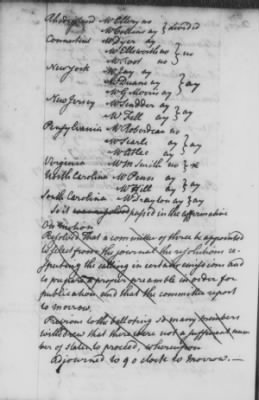 Rhode Island Mr Ellery no
Mr Collins ay } divided
Connecticut Mr Dyer ay
Mr Ellsworth no } no
Mr Root no
New York Mr Jay ay
Mr Duane ay } ay
Mr G Morris ay
New Jersey Mr Scudder ay
Mr Fell ay } ay
Pensylvania Mr Roberdeau no
Mr Searle ay } ay
Mr Atlee ay
Virginia Mr M Smith no } x
North Carolina Mr Penn ay
Mr Hill ay } ay
South Carolina Mr Drayton ay } ay
So it was passed in the affirmative
On motion
Resolved That a committee of three be appointed
to select from the journal the resolutions re-
specting the calling in certain emissions and
to prepare a proper preamble in order for
publication and that the committee report
to morrow.
Previous to the balloting so many members
withdrew that there were not a sufficient num
ber of states to proceed, whereupon
Adjourned to 9 o clock to Morrow.—